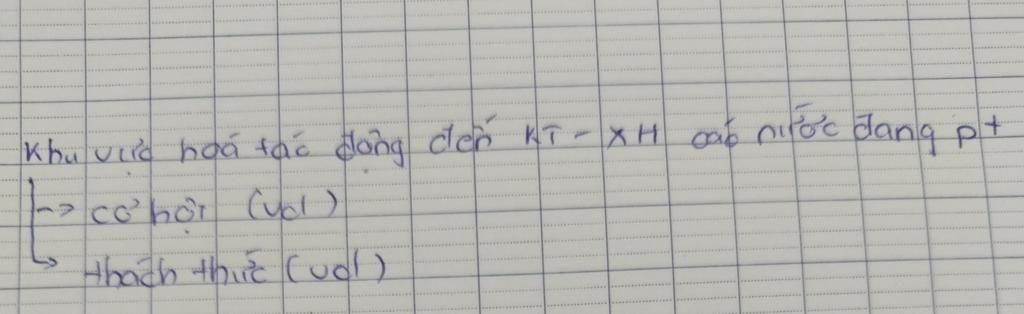 Khu vực hoá tác động đến KT - XH các nước đang pt
↳ cơ hội (vd)
↳ thách thức (vd)